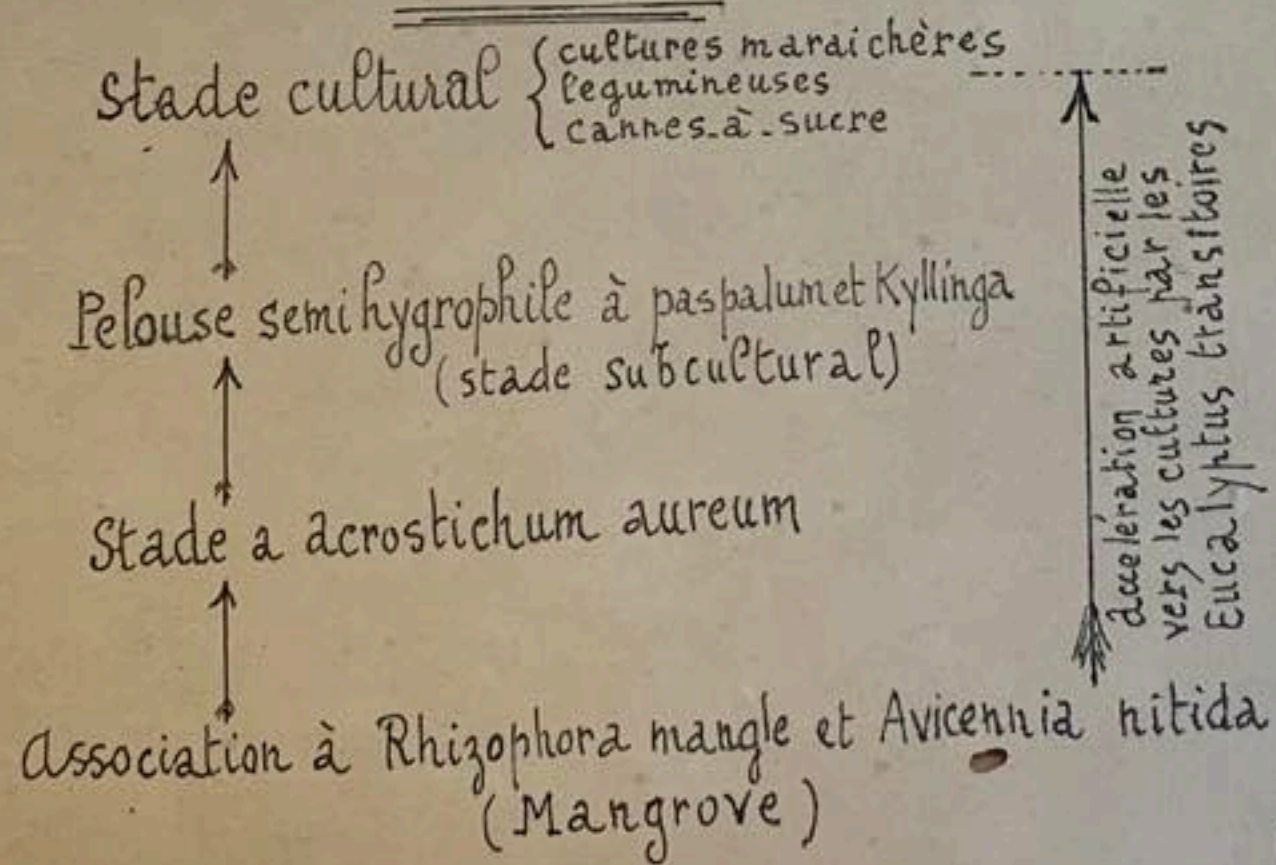 Stade cultural { cultures maraichères
legumineuses
cannes-à-sucre
Pelouse semihygrophile à paspalum et Kyllinga
(stade subcultural)
Stade a acrostichum aureum
Association à Rhizophora mangle et Avicennia nitida
(Mangrove)
accélération artificielle
vers les cultures par les
Eucalyptus transitoires